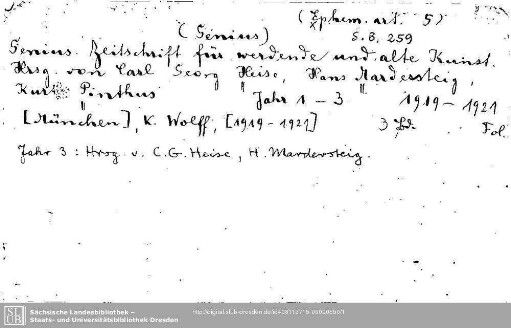 (Ephem. art. 5)
(Genius)
S.B. 259
Genius. Zeitschrift für werdende und alte Kunst.
Hrsg. von Carl Georg Heise, Hans Mardersteig,
Kurt Pinthus
Jahr 1 - 3 1919 - 1921
[München], K. Wolff, [1919-1921] 3 Bd. Fol.
Jahr 3 : Hrsg. v. C.G. Heise, H. Mardersteig.
Sächsische Landesbibliothek –
Staats- und Universitätsbibliothek Dresden